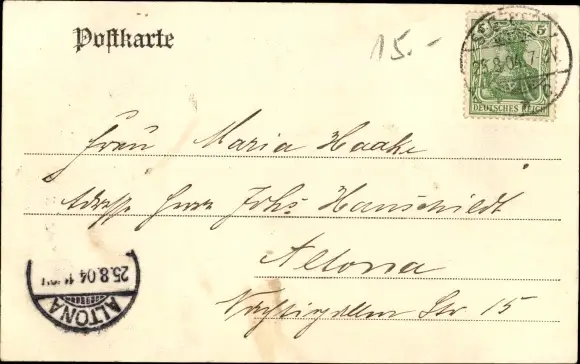 Postkarte
15.-
5
25.8.04.7-
DEUTSCHES REICH
Frau Maria Haake
Adresse Herrn Johs. Hanschildt
Altona
Str 15
25.8.04
ALTONA